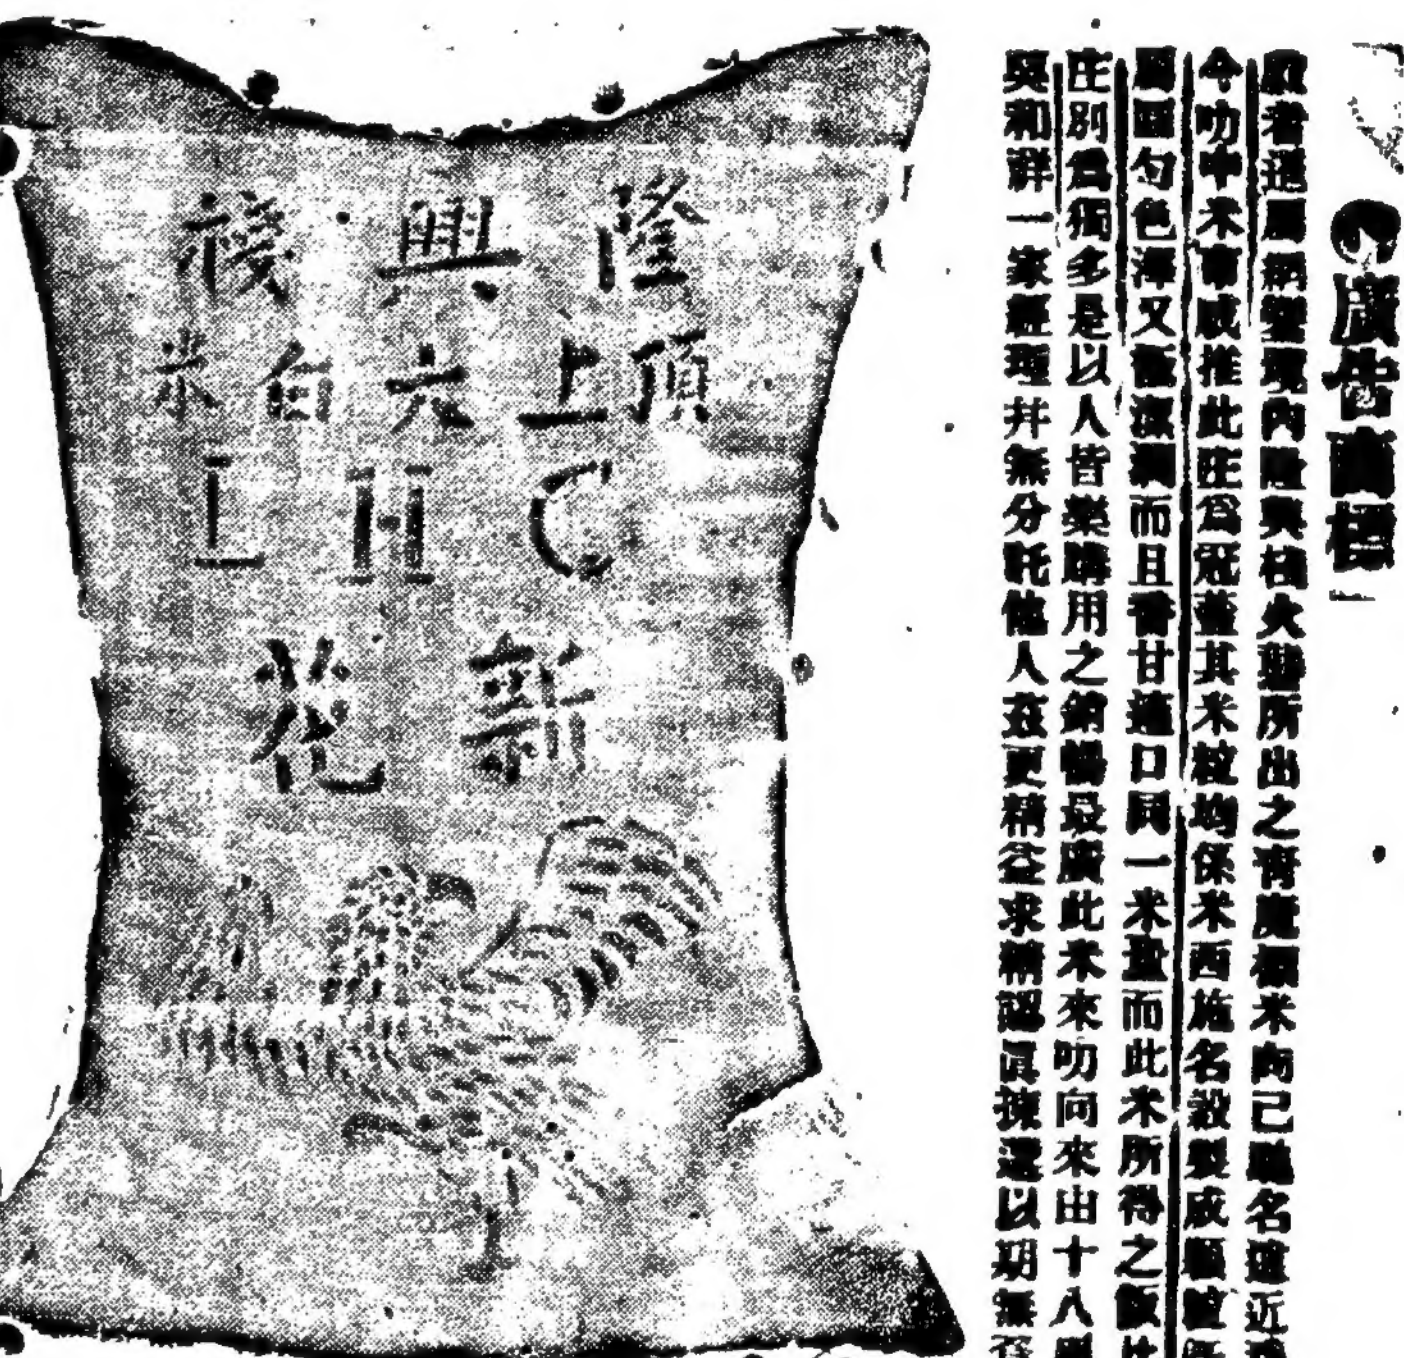 廣告商標
啟者暹屬網鑾現內隆興棧火礱所出之青鹿標米向已馳名遠近
今叻中米市咸推此庄為冠蓋其米粒均係米西施名穀製成顆
圓勻色澤又潔潤而且香甘適口同一米量而此米所得之飯比
庄別為獨多是以人皆樂購用之銷暢最廣此米來叻向來由十八
興和祥一家經理并無分託他人茲更精益求精認真揀選以期無
隆興棧
頂上六白米
C H L
新